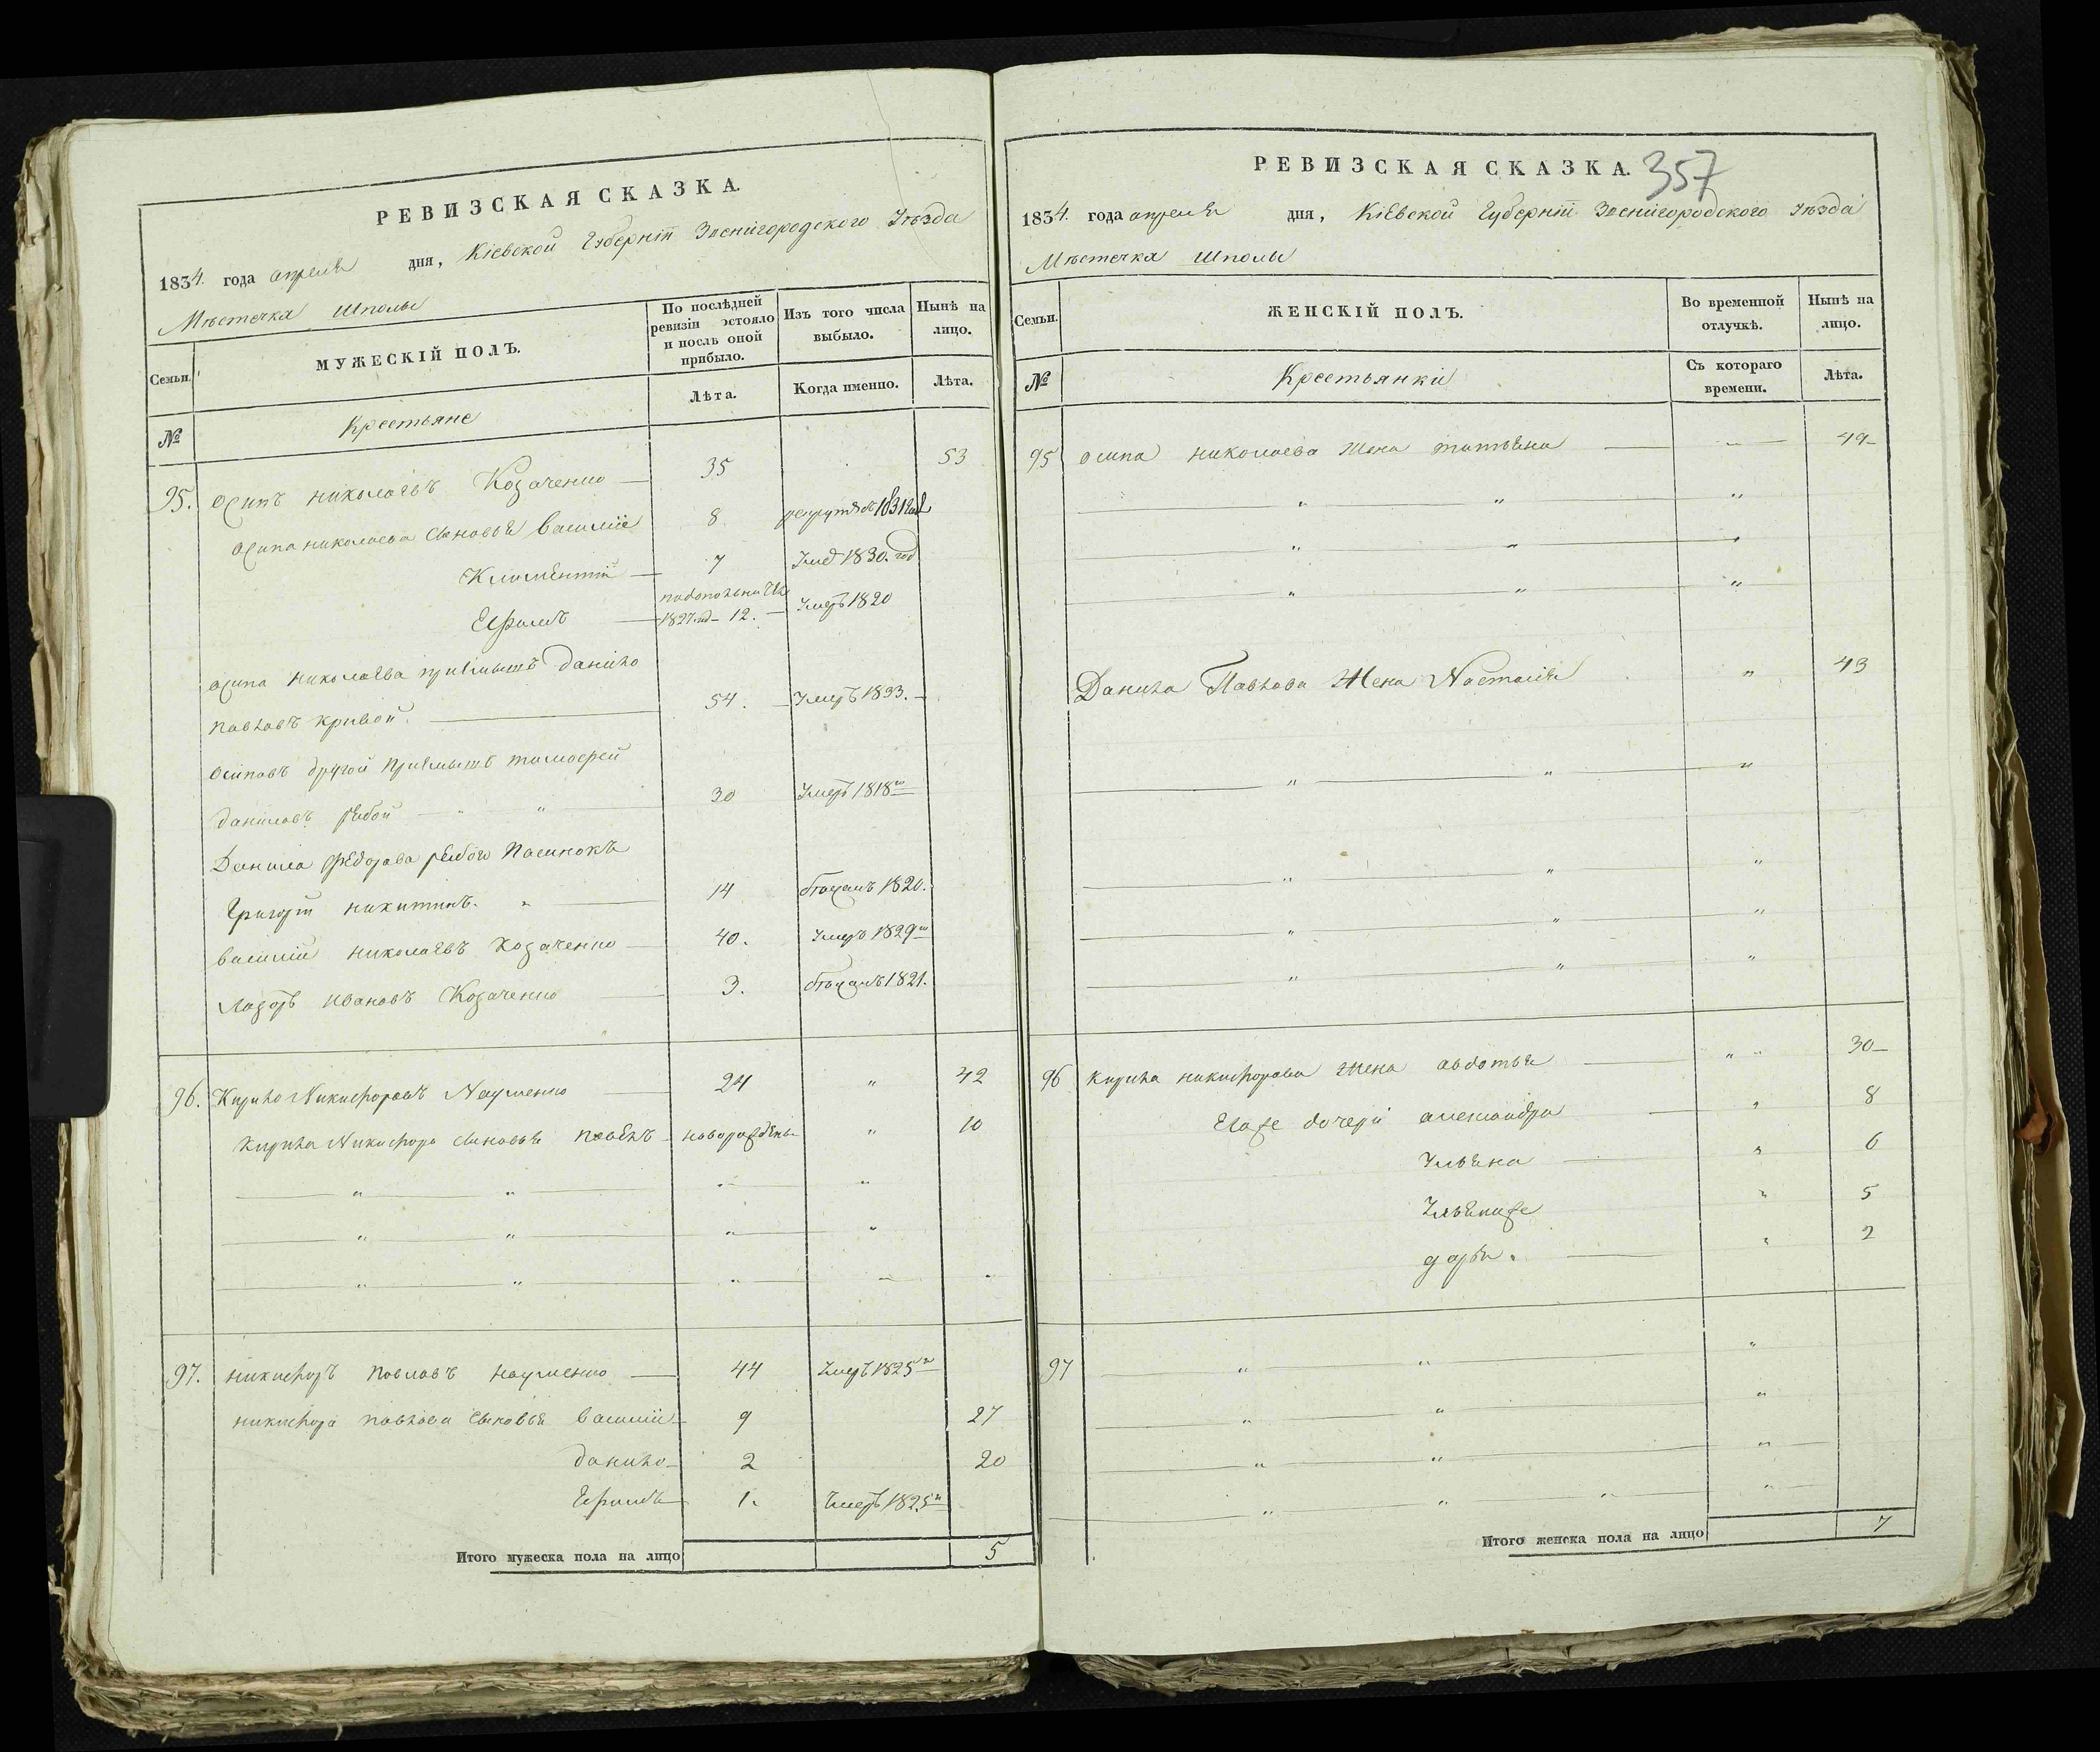 РЕВИЗСКАЯ СКАЗКА.
1834. года апреля дня, Кіевской Губерніи Звенигородского Уѣзда
Мѣстечка Шполы
Семьи.
МУЖЕСКІЙ ПОЛЪ.
По послѣдней ревизіи состояло и послѣ оной прибыло.
Изъ того числа выбыло.
Нынѣ на лицо.
№
Крестьяне
Лѣта.
Когда именно.
Лѣта.
95. Осипъ николаевъ Козаченко 35 53
Осипа николаева сыновья василій 8
Климентій 7 1830. год
Ефимъ 1827 год 12. Умеръ 1820
осипа николаева приймышъ данило
павловъ кривой. 54. Умеръ 1833.
осиповъ другой приймышъ тимофей
даниловъ рябой 30 Умеръ 1818го
Данила федорова рябого пасинокъ
Григорій никитинъ. 14 бѣжалъ 1820.
василий николаевъ козаченко 40. Умеръ 1829го
Лазоръ ивановъ Козаченко 3. бѣжалъ 1821.
96. Кирило Никифоровъ Науменко 24 " 42
Кирила Никифора сыновья павелъ новорожденъ " 10
97. никифоръ павловъ науменко 44 Умеръ 1825го
никифора павлова сыновья василий 9 27
данило 2 20
Ефимъ 1. Умеръ 1825го
Итого мужеска пола на лицо 5
РЕВИЗСКАЯ СКАЗКА. 357
1834. года апреля дня, Кіевской Губерніи Звенигородского Уѣзда
Мѣстечка Шполы
Семьи.
ЖЕНСКІЙ ПОЛЪ.
Во временной отлучкѣ.
Нынѣ на лицо.
№
Крестьянки
Съ котораго времени.
Лѣта.
95 осипа николаева жена татьяна 49
Данила Павлова Жена Настасія " 43
96 кирила никифорова жена авдотья " 30
Еяже дочери александра " 8
Ульяна " 6
" 5
дарья. " 2
97
Итого женска пола на лицо 7